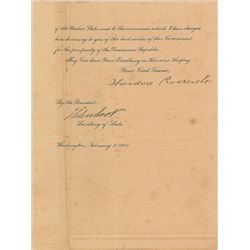 of the United States and to the assurance which I have charged
him to convey to you of the best wishes of this Government
for the prosperity of the Dominican Republic.
May God have Your Excellency in His wise keeping.
Your Good Friend,
Theodore Roosevelt
By the President:
Elihu Root
Secretary of State.
Washington, February 2, 1907.